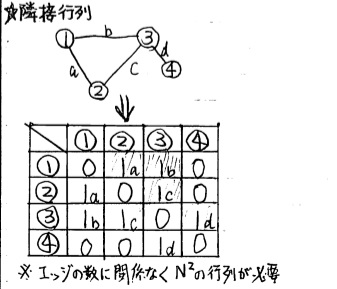 ☆隣接行列
① b ③
a c d ④
②
① ② ③ ④
① 0 1a 1b 0
② 1a 0 1c 0
③ 1b 1c 0 1d
④ 0 0 1d 0
※ エッジの数に関係なく N²の行列が必要